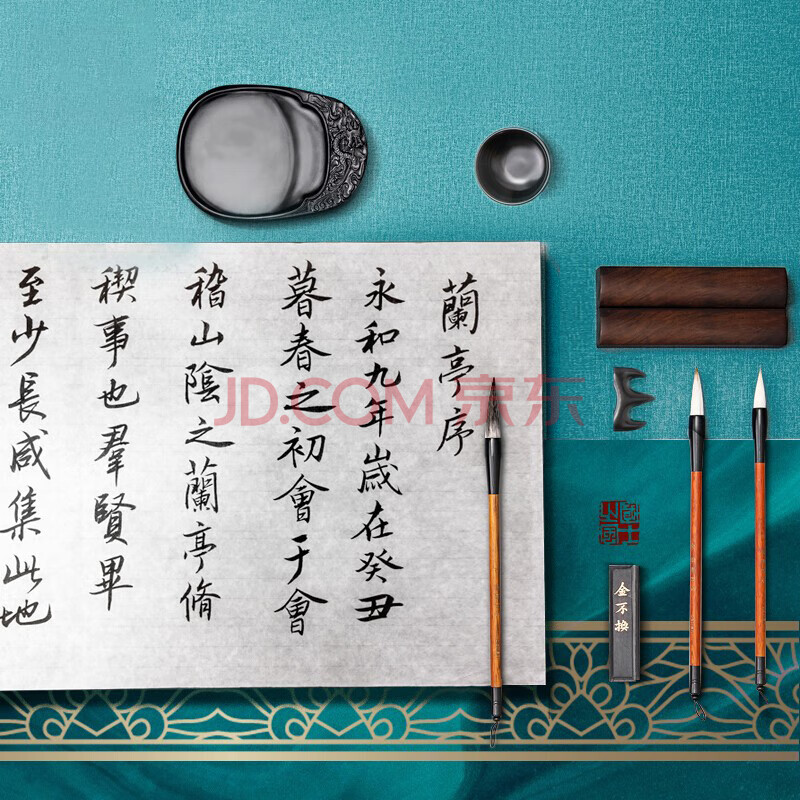 蘭亭序
永和九年歲在癸丑
暮春之初會于會
稽山陰之蘭亭脩
禊事也羣賢畢
至少長咸集此地
金不換
JD.COM 京东